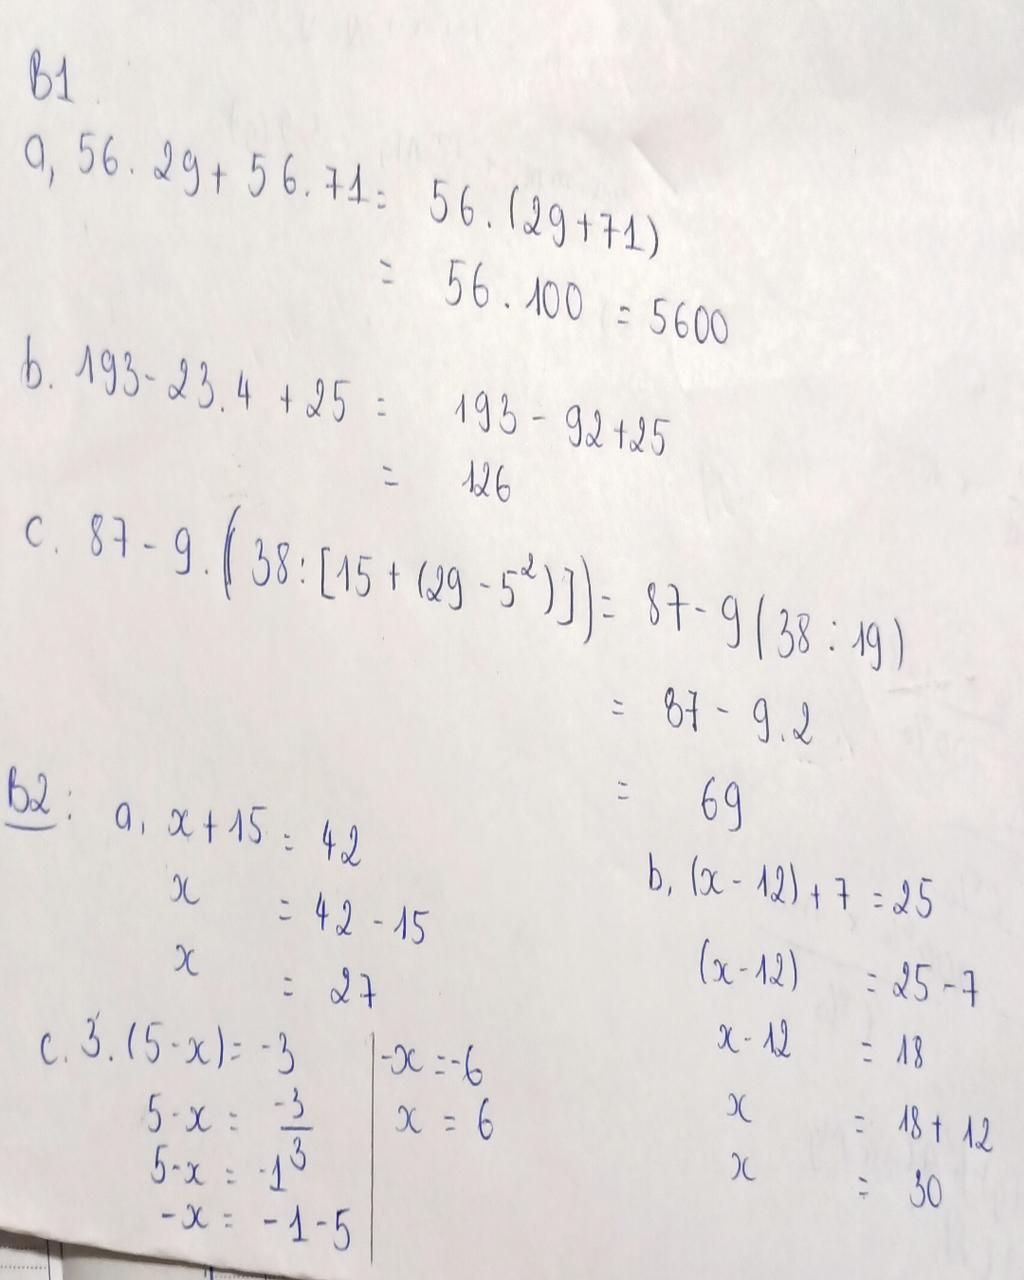 B1
a, 56. 29 + 56. 71 = 56. (29+71)
= 56. 100 = 5600
b. 193 - 23.4 + 25 = 193 - 92 + 25
= 126
c. 87 - 9. (38 : [15 + (29 - 5²)]) = 87 - 9 (38 : 19)
= 87 - 9.2
= 69
B2: a, x + 15 = 42
x = 42 - 15
x = 27
b, (x - 12) + 7 = 25
(x - 12) = 25 - 7
x - 12 = 18
x = 18 + 12
x = 30
c. 3. (5 - x) = -3
5 - x = -3/3
5 - x = -1
-x = -1 - 5
-x = -6
x = 6